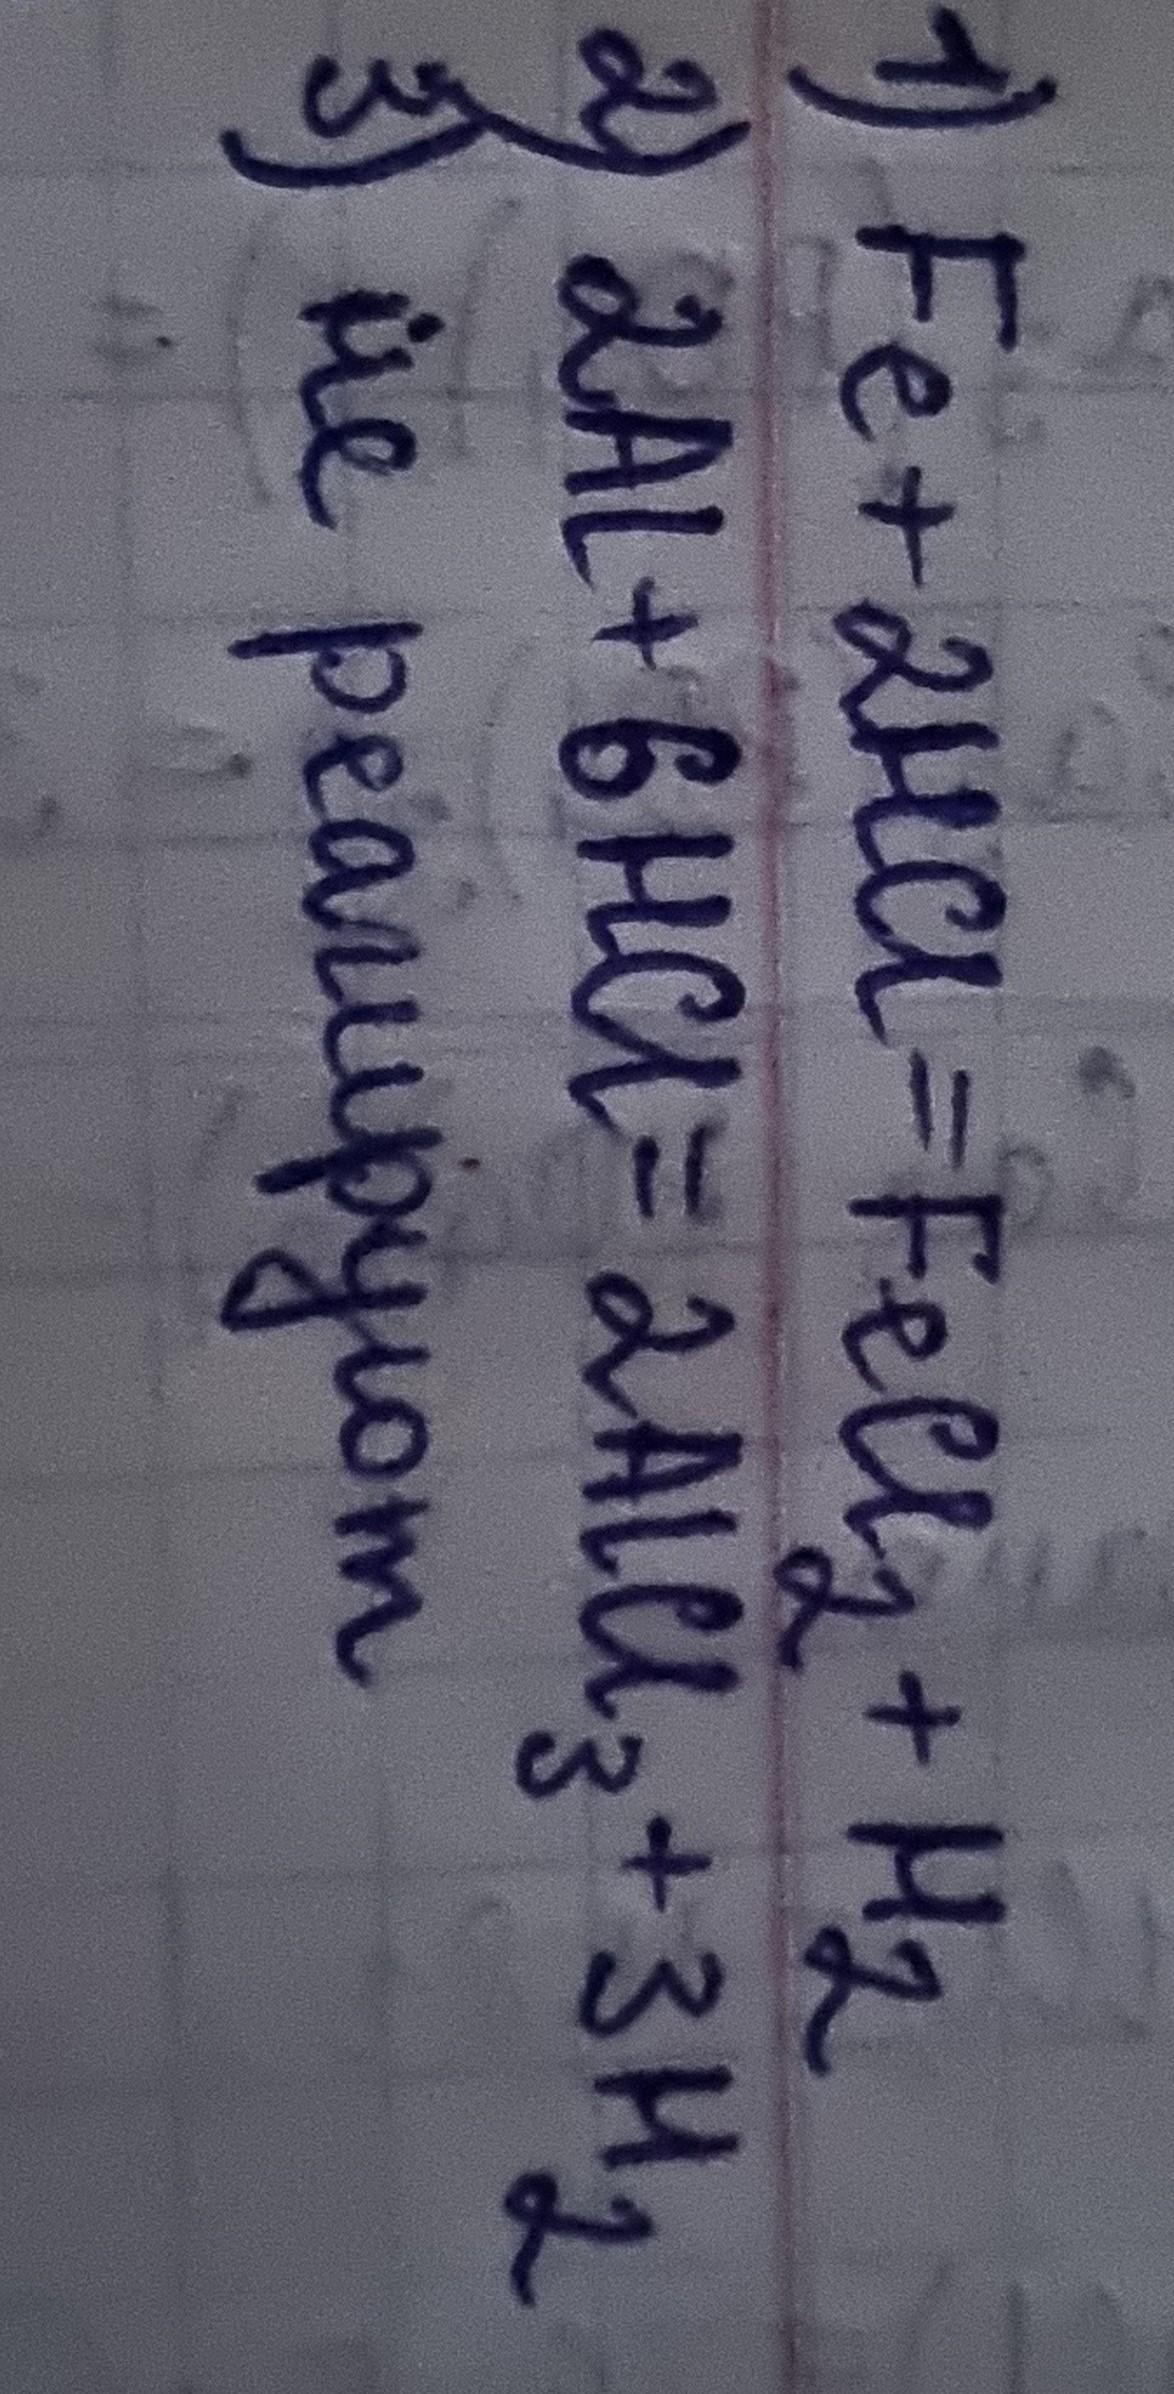 1) Fe + 2HCl = FeCl₂ + H₂
2) 2Al + 6HCl = 2AlCl₃ + 3H₂
3) не реагируют